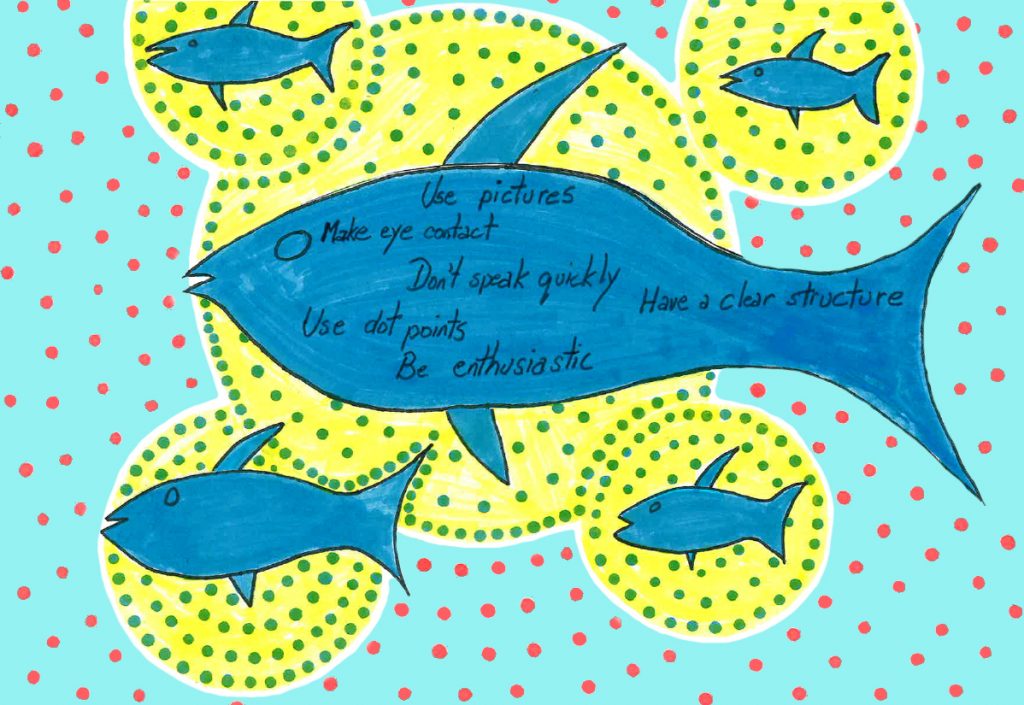 Use pictures
Make eye contact
Don't speak quickly
Have a clear structure
Use dot points
Be enthusiastic